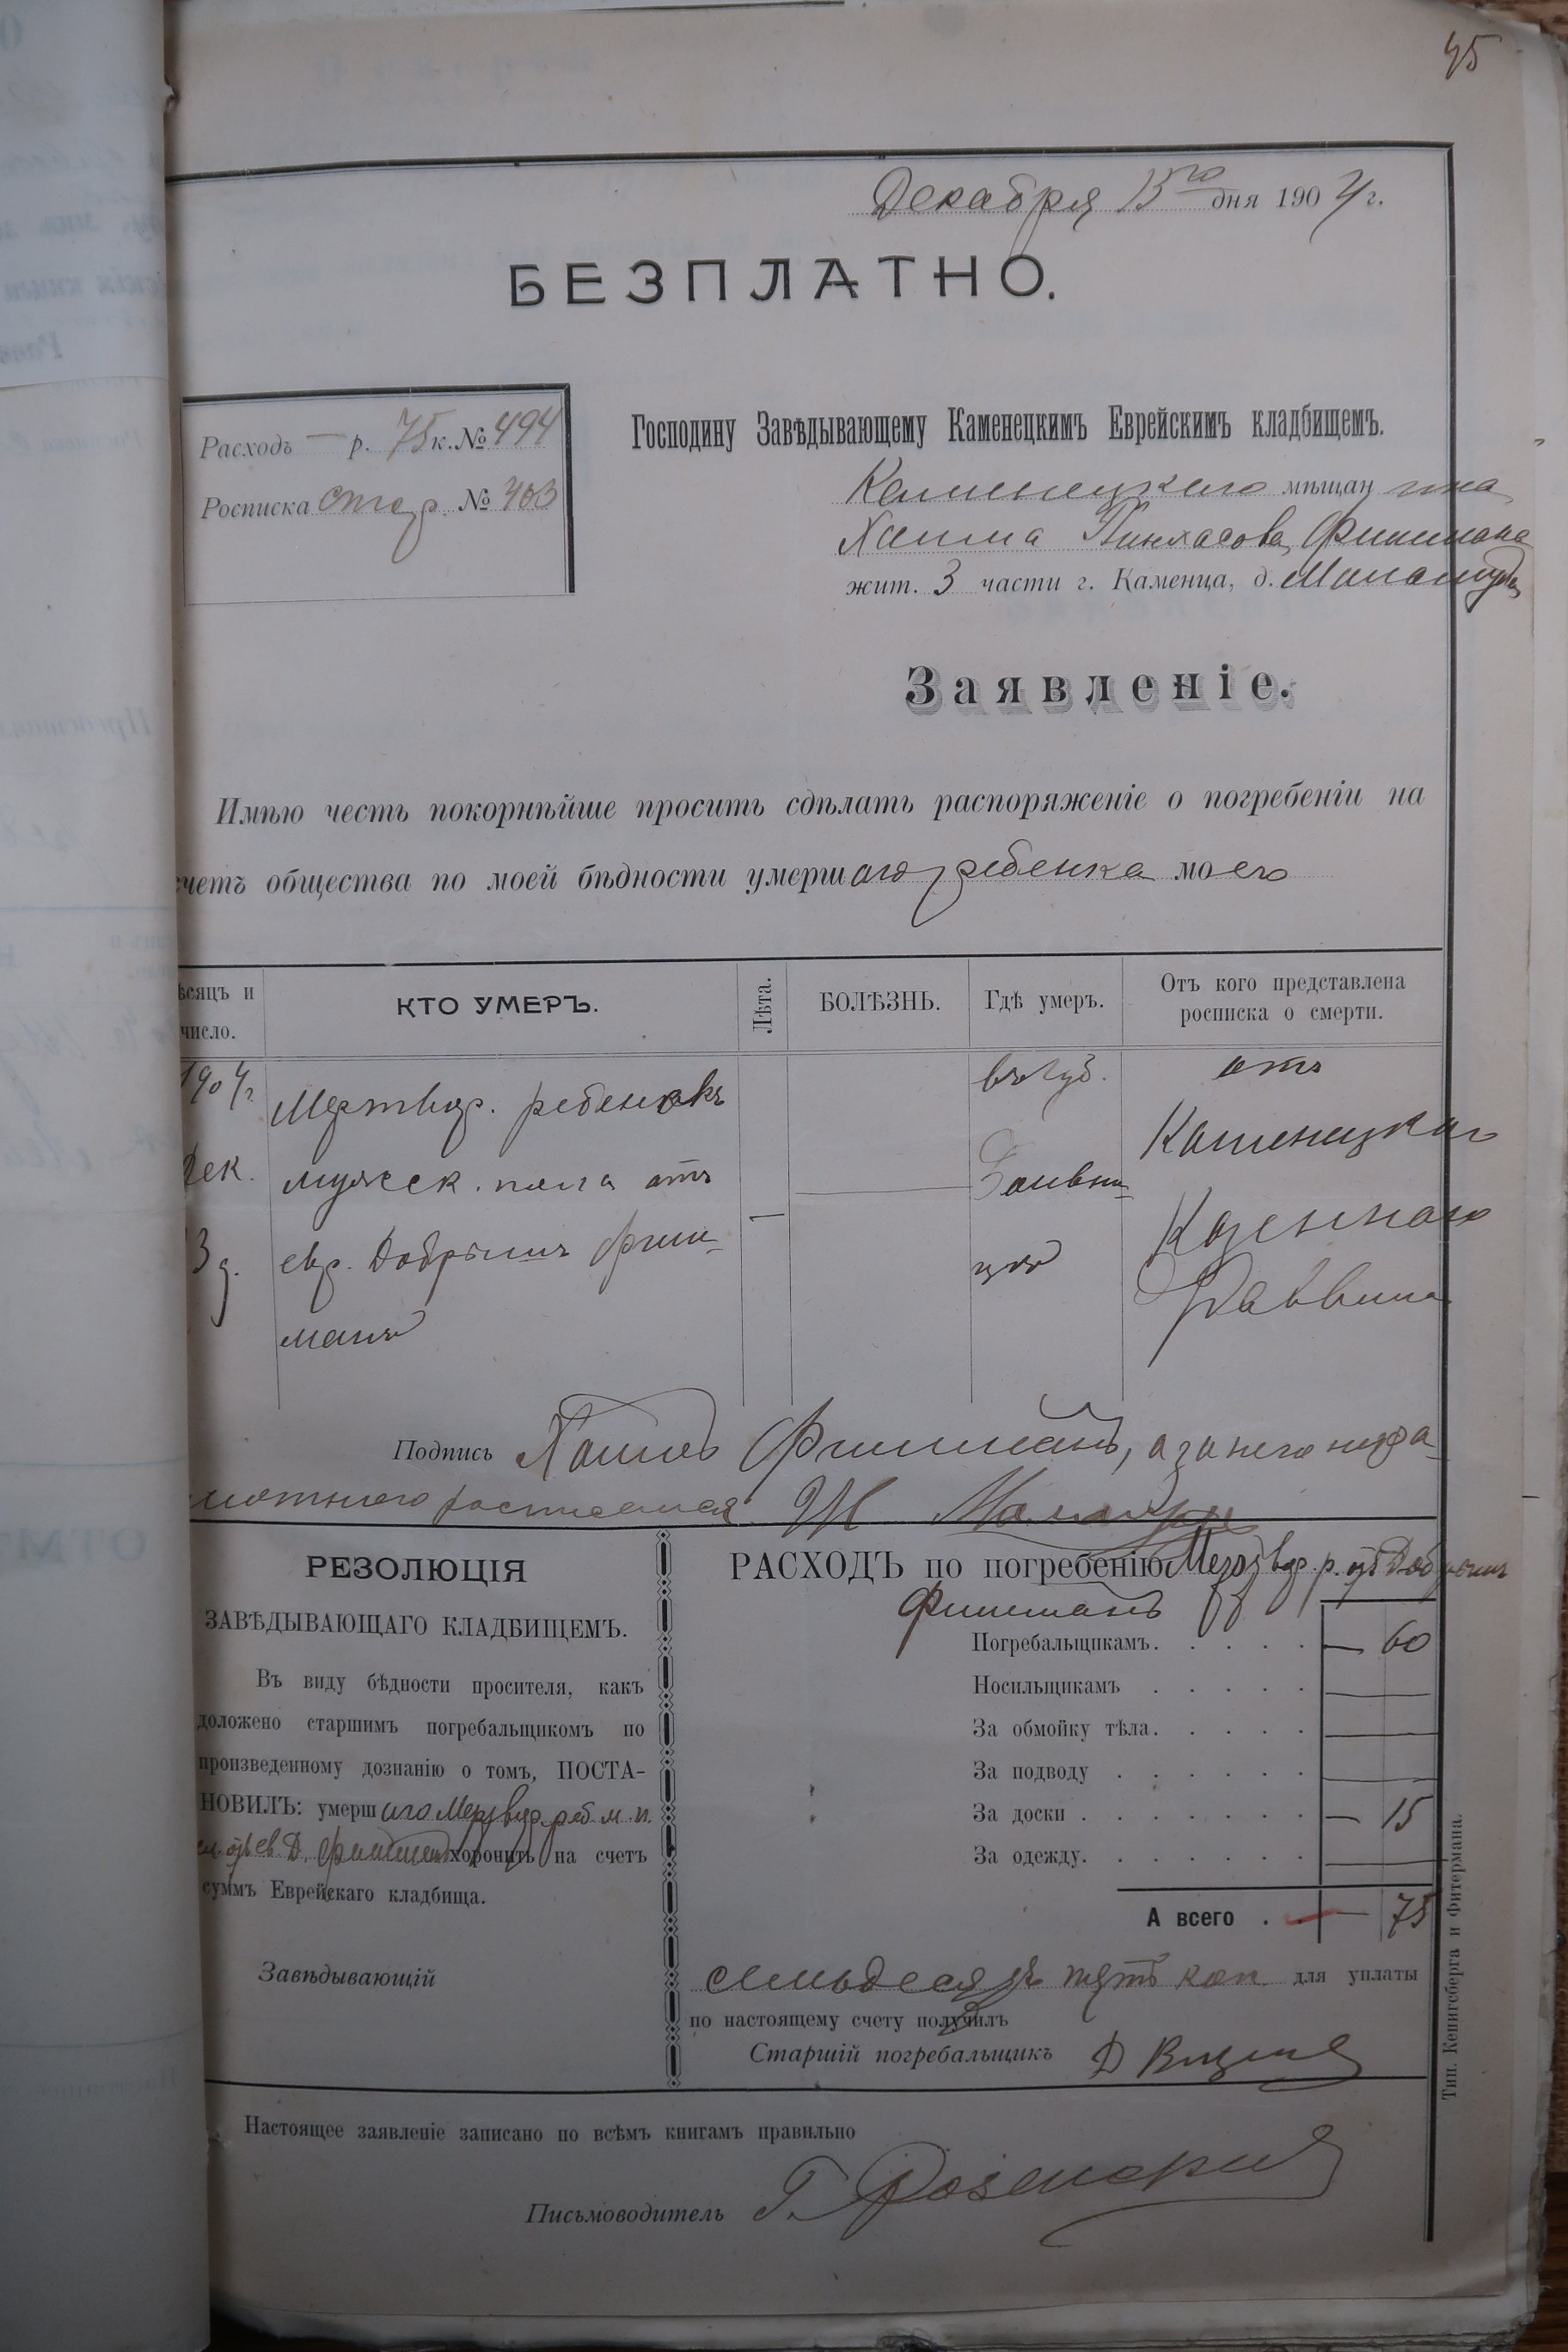 Декабря 15го дня 1904 г.
БЕЗПЛАТНО.
Расходъ — р. 75 к. № 494
Росписка стар. № 403
Господину Завѣдывающему Каменецкимъ Еврейскимъ кладбищемъ.
Каменецкаго мѣщанина
Хаима Пинхасова Фишмана
жит. 3 части г. Каменца, д.
Заявленіе.
Имѣю честь покорнѣйше просить сдѣлать распоряженіе о погребеніи на
счетъ общества по моей бѣдности умершаго ребенка моего
ѣсяцъ и число.
КТО УМЕРЪ.
Лѣта.
БОЛѢЗНЬ.
Гдѣ умеръ.
Отъ кого представлена росписка о смерти.
1904г. Мертвор. ребенокъ въ Губ. отъ
Дек. мужеск. пола отъ Больни- Каменецкаго
3 д. евр. Добрышъ Фиш- — цѣ Казеннаго
манъ Раввина
Подпись Хаимъ Фишманъ, а за него негра-
мотнаго росписался
РЕЗОЛЮЦІЯ
ЗАВѢДЫВАЮЩАГО КЛАДБИЩЕМЪ.
Въ виду бѣдности просителя, какъ
доложено старшимъ погребальщикомъ по
произведенному дознанію о томъ, ПОСТА-
НОВИЛЪ: умершаго Мертвор. реб. м. п.
отъ ев. Д. Фишманъ хоронить на счетъ
суммъ Еврейскаго кладбища.
Завѣдывающій
РАСХОДЪ по погребенію Мертвор. р. отъ Добрышъ
Фишманъ
Погребальщикамъ. — 60
Носильщикамъ —
За обмойку тѣла. —
За подводу —
За доски . — 15
За одежду. —
А всего . — 75
семьдесятъ пять коп. для уплаты
по настоящему счету получилъ
Старшій погребальщикъ Д
Настоящее заявленіе записано по всѣмъ книгамъ правильно
Письмоводитель Г.
Тип. Кенигсберга и Фитермана.